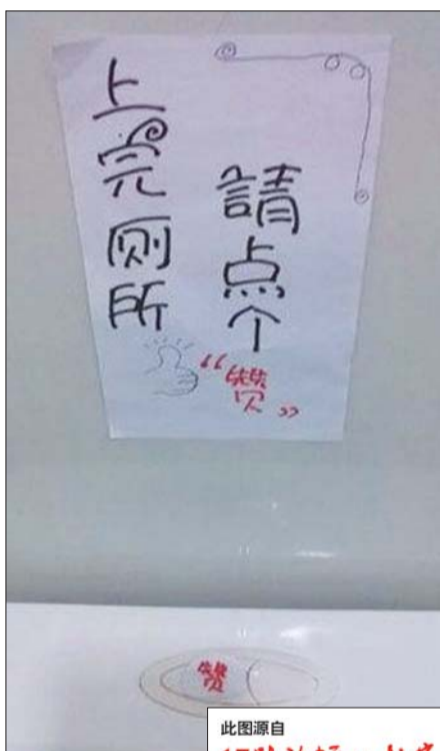 上完厕所
請点个
“赞”
赞
此图源自